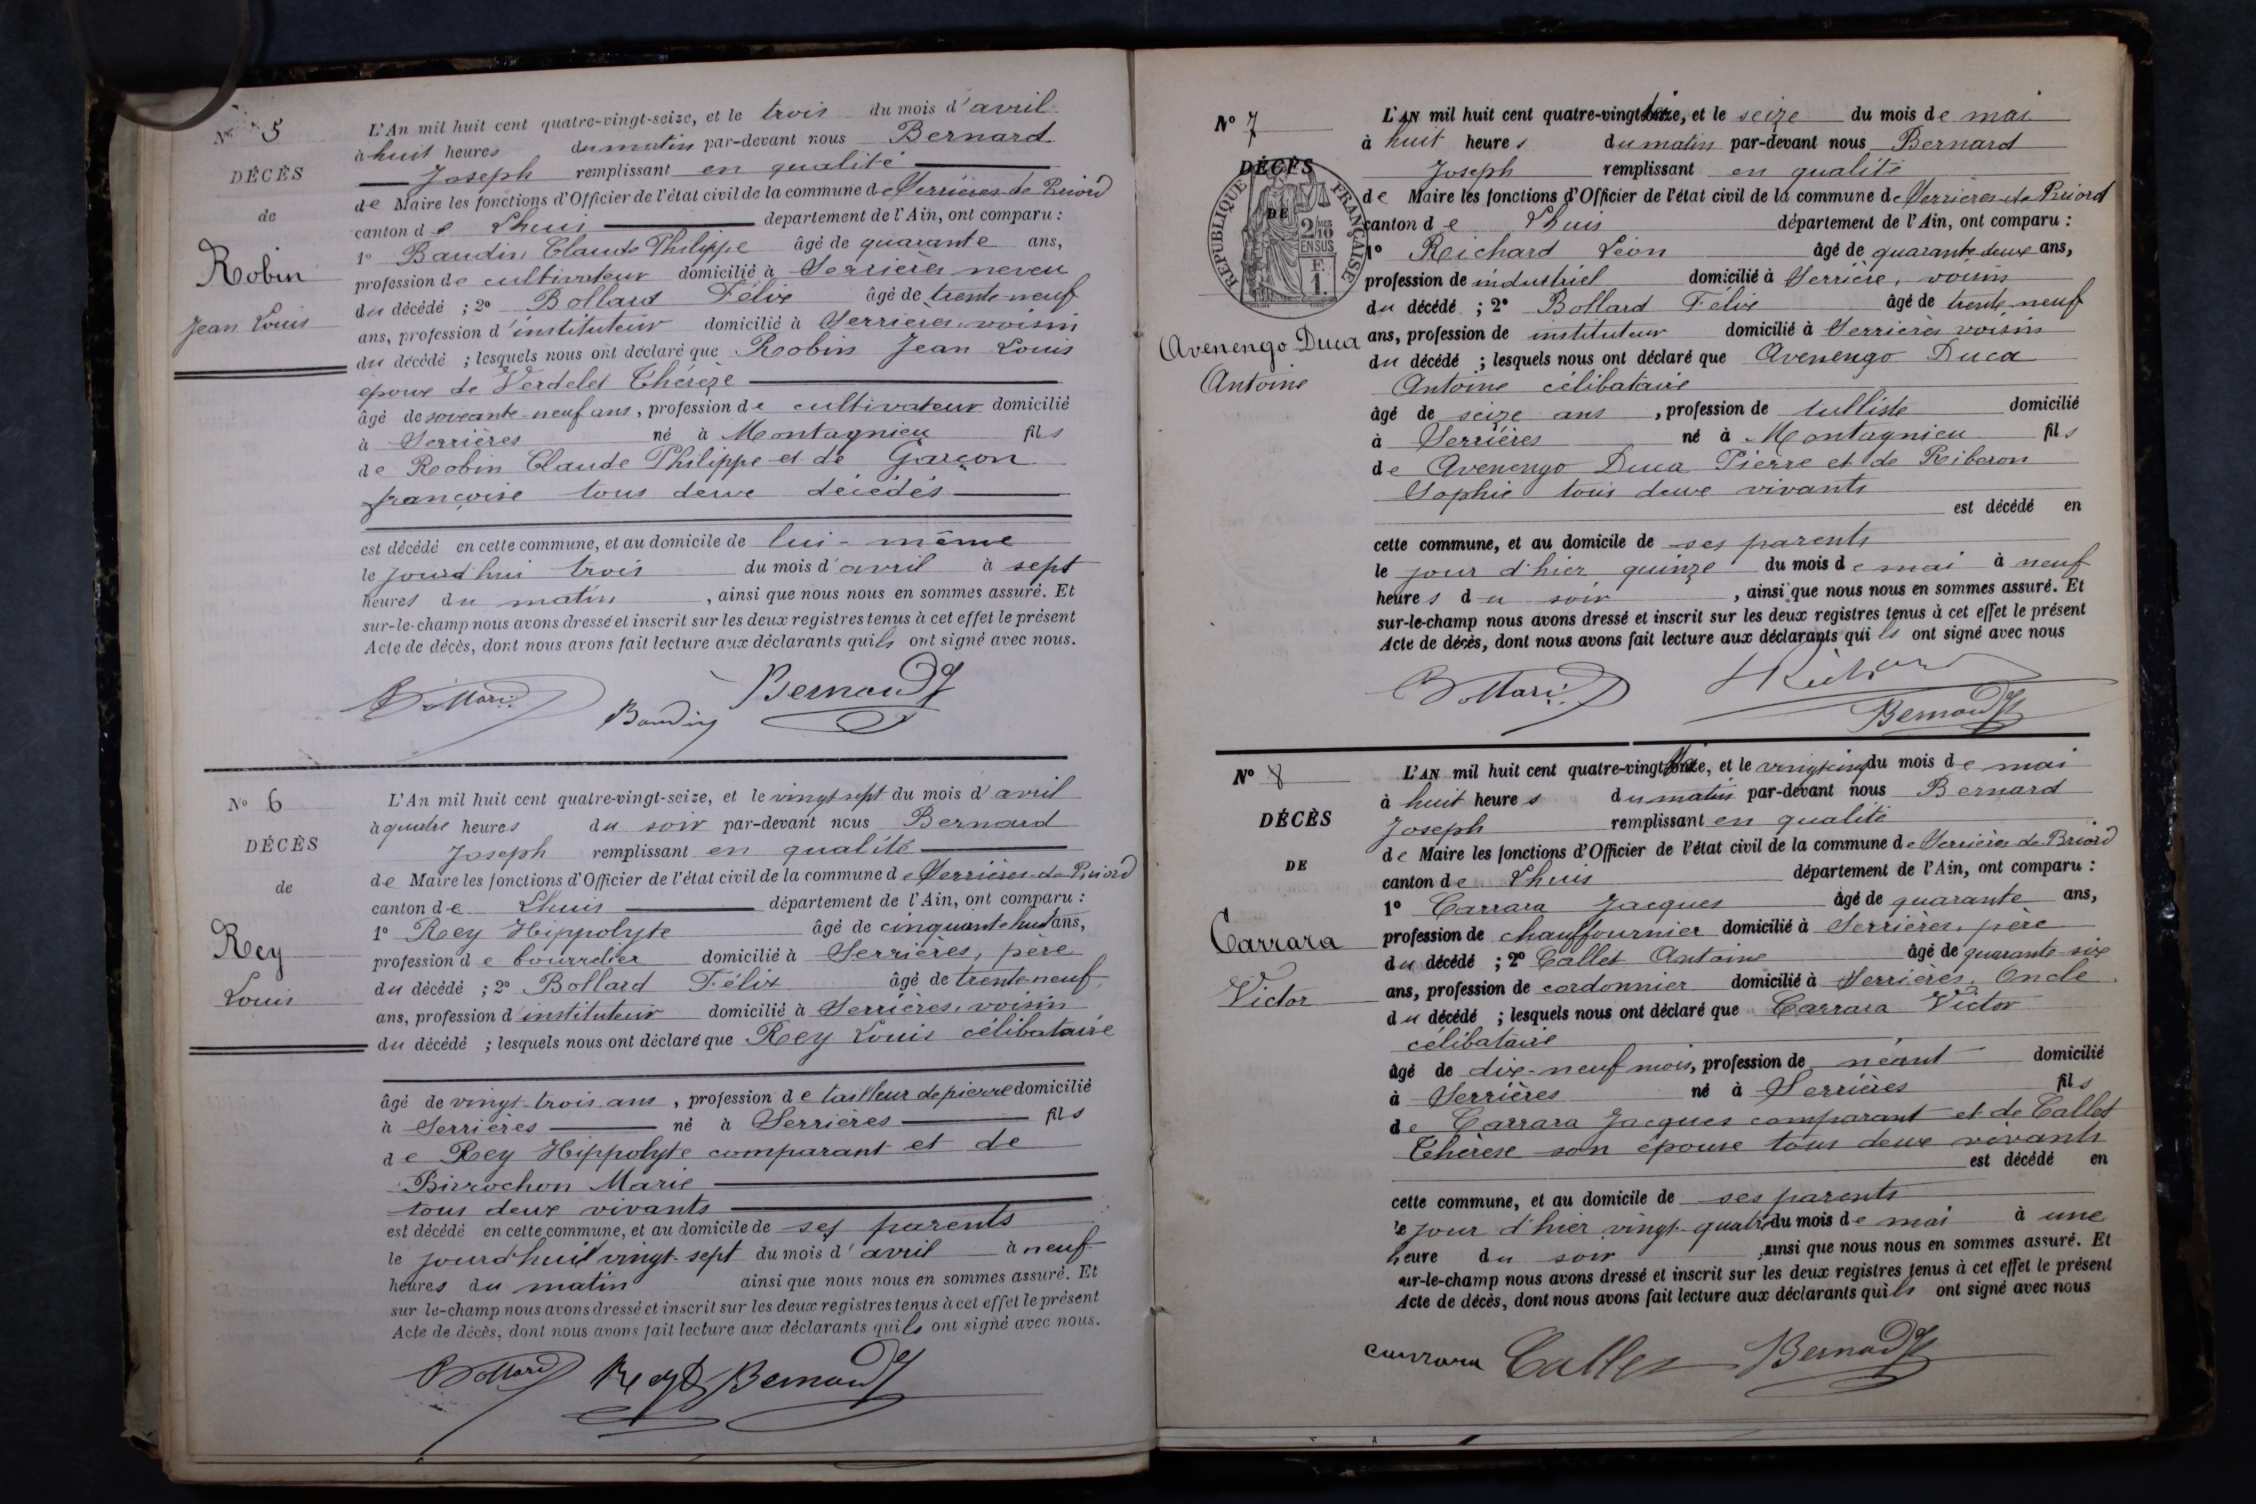 N° 5
DÉCÈS
de
Robin
Jean Louis
L'An mil huit cent quatre-vingt-seize, et le trois du mois d'avril
à huit heures du matin par-devant nous Bernard
Joseph remplissant en qualité
de Maire les fonctions d'Officier de l'état civil de la commune de Serrières-de-Briord
canton de Lhuis département de l'Ain, ont comparu :
1° Baudin Claude Philippe âgé de quarante ans,
profession de cultivateur domicilié à Serrières neveu
du décédé ; 2° Bollard Félix âgé de trente-neuf
ans, profession d'instituteur domicilié à Serrières, voisin
du décédé ; lesquels nous ont déclaré que Robin Jean Louis
époux de Verdelet Thérèze
âgé de soixante-neuf ans, profession de cultivateur domicilié
à Serrières né à Montagnieu fils
de Robin Claude Philippe et de Garçon
françoise tous deux décédés
est décédé en cette commune, et au domicile de lui-même
le jourd'hui trois du mois d'avril à sept
heures du matin, ainsi que nous nous en sommes assuré. Et
sur-le-champ nous avons dressé et inscrit sur les deux registres tenus à cet effet le présent
Acte de décès, dont nous avons fait lecture aux déclarants qu'ils ont signé avec nous.
Bollard Baudin Bernard
N° 6
DÉCÈS
de
Rey
Louis
L'An mil huit cent quatre-vingt-seize, et le vingt sept du mois d'avril
à quatre heures du soir par-devant nous Bernard
Joseph remplissant en qualité
de Maire les fonctions d'Officier de l'état civil de la commune de Serrières-de-Briord
canton de Lhuis département de l'Ain, ont comparu :
1° Rey Hippolyte âgé de cinquante huit ans,
profession de bourrelier domicilié à Serrières, père
du décédé ; 2° Bollard Félix âgé de trente-neuf
ans, profession d'instituteur domicilié à Serrières, voisin
du décédé ; lesquels nous ont déclaré que Rey Louis célibataire
âgé de vingt-trois ans, profession de tailleur de pierre domicilié
à Serrières né à Serrières fils
de Rey Hippolyte comparant et de
Birrochon Marie
tous deux vivants
est décédé en cette commune, et au domicile de ses parents
le jourd'hui vingt-sept du mois d'avril à neuf
heures du matin ainsi que nous nous en sommes assuré. Et
sur le-champ nous avons dressé et inscrit sur les deux registres tenus à cet effet le présent
Acte de décès, dont nous avons fait lecture aux déclarants qu'ils ont signé avec nous.
Bollard Rey Bernard
N° 7
DÉCÈS
DE
RÉPUBLIQUE FRANÇAISE
2/10 EN SUS
F. 1.
Avenengo Duca
Antoine
L'AN mil huit cent quatre-vingt seize, et le seize du mois de mai
à huit heures du matin par-devant nous Bernard
Joseph remplissant en qualité
de Maire les fonctions d'Officier de l'état civil de la commune de Serrières-de-Briord
canton de Lhuis département de l'Ain, ont comparu :
1° Reichard Léon âgé de quarante-deux ans,
profession de industriel domicilié à Serrière, voisin
du décédé ; 2° Bollard Félix âgé de trente-neuf
ans, profession de instituteur domicilié à Serrières voisin
du décédé ; lesquels nous ont déclaré que Avenengo Duca
Antoine célibataire
âgé de seize ans, profession de tulliste domicilié
à Serrières né à Montagnieu fils
de Avenengo Duca Pierre et de Riberon
Sophie tous deux vivants
est décédé en
cette commune, et au domicile de ses parents
le jour d'hier quinze du mois de mai à neuf
heures du soir, ainsi que nous nous en sommes assuré. Et
sur-le-champ nous avons dressé et inscrit sur les deux registres tenus à cet effet le présent
Acte de décès, dont nous avons fait lecture aux déclarants qui ls ont signé avec nous
Bollard
Bernard
N° 8
DÉCÈS
DE
Carrara
Victor
L'AN mil huit cent quatre-vingt seize, et le vingt cinq du mois de mai
à huit heures du matin par-devant nous Bernard
Joseph remplissant en qualité
de Maire les fonctions d'Officier de l'état civil de la commune de Serrières de Briord
canton de Lhuis département de l'Ain, ont comparu :
1° Carrara Jacques âgé de quarante ans,
profession de chauffournier domicilié à Serrières, père
du décédé ; 2° Callet Antoine âgé de quarante-six
ans, profession de cordonnier domicilié à Serrières, Oncle
du décédé ; lesquels nous ont déclaré que Carrara Victor
célibataire
âgé de dix-neuf mois, profession de néant domicilié
à Serrières né à Serrières fils
de Carrara Jacques comparant et de Callet
Thérèse son épouse tous deux vivants
est décédé en
cette commune, et au domicile de ses parents
le jour d'hier vingt-quatre du mois de mai à une
heure du soir, ainsi que nous nous en sommes assuré. Et
sur-le-champ nous avons dressé et inscrit sur les deux registres tenus à cet effet le présent
Acte de décès, dont nous avons fait lecture aux déclarants qu'ils ont signé avec nous
Carrara Callet Bernard